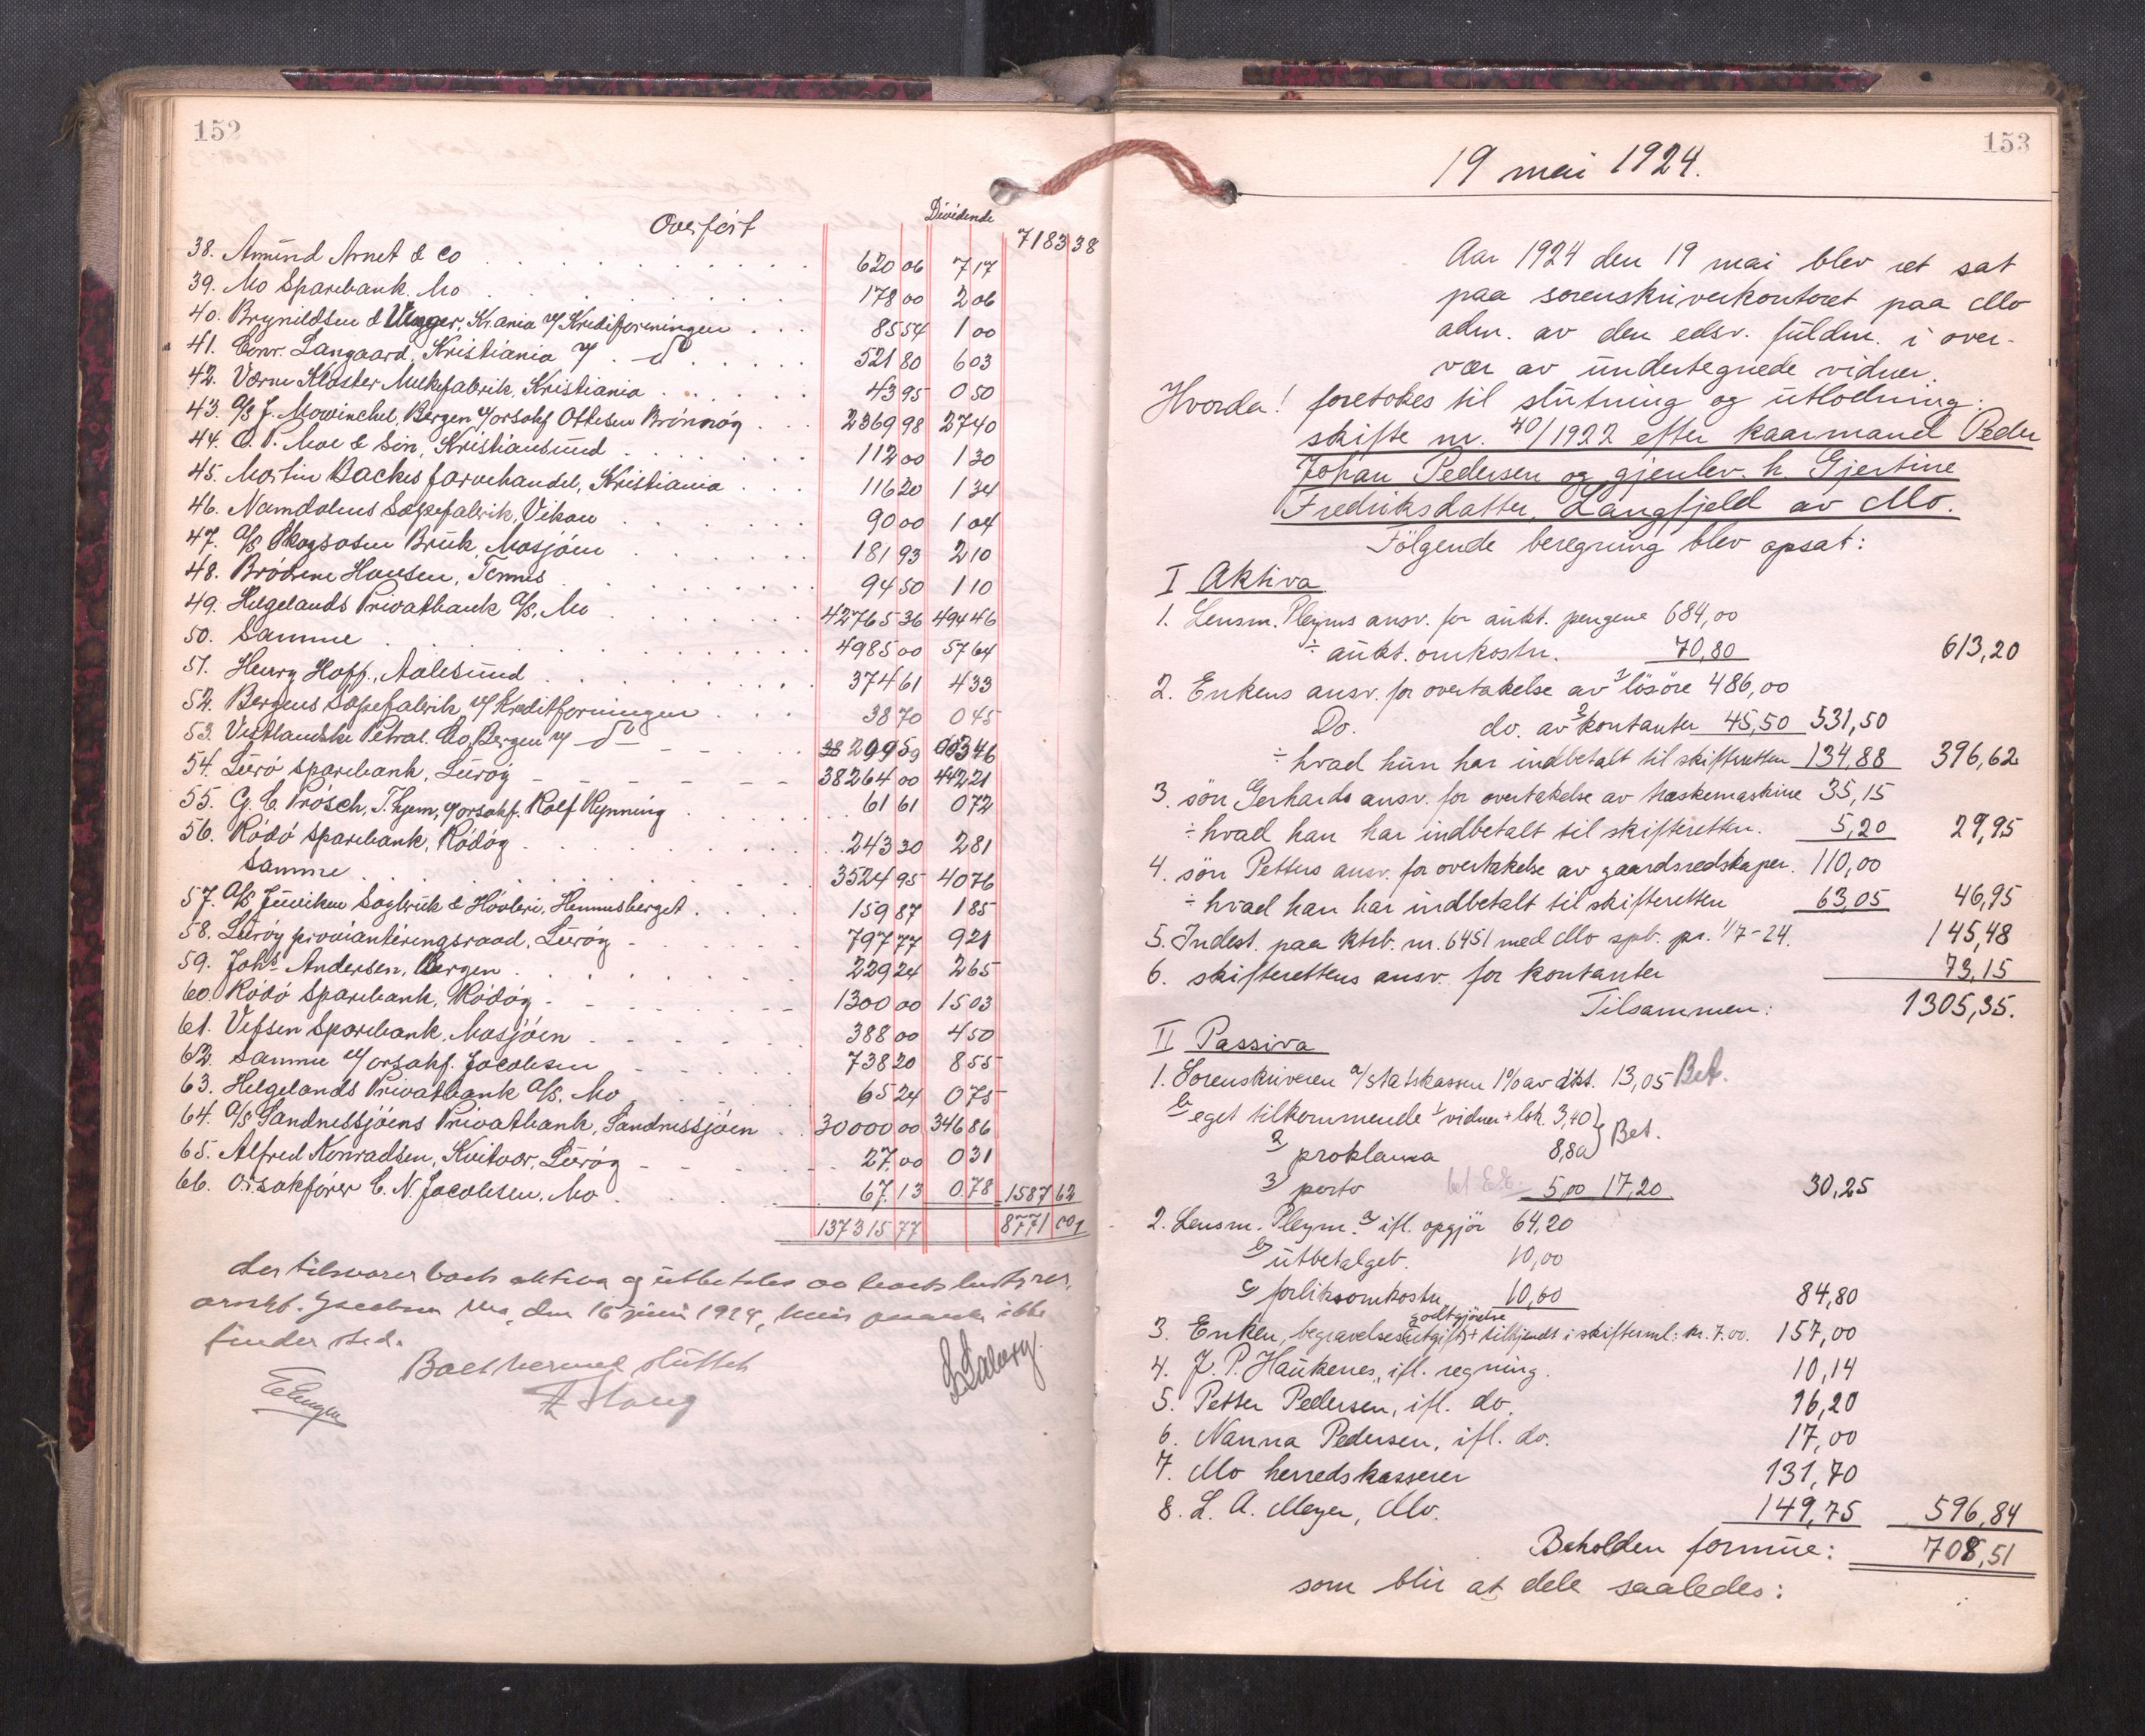 152
Overført
Dividende
7183 38
38. Amund Arnet & Co 620 06 7 17
39. Mo Sparebank. Mo 178 00 2 06
40. Bryneldsen & Unger, Kr.ania v/ Kreditforeningen 85 54 1 00
41. Conr. Langaard, Kristiania v/ do 521 80 6 03
42. Værne Kloster Melkefabrik, Kristiania 43 95 0 50
43. A/S J. Mowinckel, Bergen v/orsakf. Ottesen Brønnøy 2369 98 27 40
44. O. P. Moe & Søn, Kristiansund 112 00 1 30
45. Martin Backes farvehandel, Kristiania 116 20 1 34
46. Namdalens Sæpefabrik, Vikan 90 00 1 04
47. A/S Skogsåsen Bruk, Mosjøen 181 93 2 10
48. Brødrene Hansen, Tennes 94 50 1 10
49. Helgelands Privatbank A/S, Mo 42765 36 494 46
50. Samme 4985 00 57 64
51. Henry Hoff, Aalesund 374 61 4 33
52. Bergens Sæpefabrik v/ Kreditforeningen 38 70 0 45
53. Vestlandske Petrol. Co, Bergen v/ do 299 59 3 46
54. Lurø sparebank, Lurøy 38264 00 442 21
55. G. C. Prösch, T.hjem, v/orsakf. Rolf Rynning 61 61 0 72
56. Rødø sparebank, Rødøy 243 30 2 81
Samme 3524 95 40 76
57. A/S Juviken Sagbruk & Høvleri, Hemnesberget 159 87 1 85
58. Lurøy provianteringsraad, Lurøy 797 77 9 21
59. Johs Andersen, Bergen 229 24 2 65
60. Rødø Sparebank, Rødøy 1300 00 15 03
61. Vefsen Sparebank, Mosjøen 388 00 4 50
62. Samme v/orsakf. Jacobsen 738 20 8 55
63. Helgelands Privatbank A/S. Mo 65 24 0 75
64. A/S Sandnessjøens Privatbank, Sandnessjøen 30000 00 346 86
65. Alfred Konradsen, Kvitvær, Lurøy 27,00 0 31
66. Orsakfører C. N. Jacobsen, Mo 67,13 0.78 1587 62
137315 77 8771 00
der tilsvarer boets aktiva og utbetales av boets bestyrer,
orsakf. Jacobsen Mo, den 16 juni 1924, hvis paaanke ikke
finder sted.
Boet hermed sluttet
153
19 mai 1924.
Aar 1924 den 19 mai blev ret sat
paa sorenskriverkontoret paa Mo
adm. av den edsv. fuldm. i over-
vær av undertegnede vidner.
Hvorda! foretokes til slutning og utlodning:
skifte nr. 40/1922 efter kaarmand Peder
Johan Pedersen og gjenlev. h. Gjertine
Fredriksdatter, Langfjeld av Mo.
Følgende beregning blev opsat:
I Aktiva
1. Lensm. Pleyms ansv. for aukt. pengene 684,00
÷ aukt. omkostn. 70,80 613,20
2. Enkens ansv. for overtakelse av 1) løsøre 486,00
Do. do. av 2) kontanter 45,50 531,50
÷ hvad hun har indbetalt til skifteretten 134,88 396,62
3. søn Gerhards ansv. for overtakelse av træskemaskine 35,15
÷ hvad han har indbetalt til skifteretten. 5,20 29,95
4. søn Petters ansv. for overtakelse av gaardsredskaper. 110,00
÷ hvad han har indbetalt til skifteretten 63,05 46,95
5. Indest. paa ktrb. nr. 6451 med Mo spb. pr. 1/7-24. 145,48
6. skifterettens ansv. for kontanter 73,15
Tilsammen: 1305,35.
II Passiva
1. Sorenskriveren a/ statskassen 1% av akt. 13,05 Bet.
b/ eget tilkommende 1/ vidner + lok. 3,40
2/ proklama 8,80 Bet.
3/ porto bet E.E. 5,00 17,20 30,25
2. Lensm. Pleym. a/ ifl. opgjør 64,20
b/ utbetalget. 10,00
c/ forliksomkostn. 10,60 84,80
3. Enken, begravelsesutgifts godtgjørelse + tilkjendt i skifterml: kr. 7.00. 157,00
4. J. P. Haukenes, ifl. regning. 10,14
5. Petter Pedersen, ifl. do. 16,20
6. Nanna Pedersen, ifl. do. 17,00
7. Mo herredskasserer 131,70
8. L. A. Meyer, Mo. 149,75 596,84
Beholden formue: 708,51
som blir at dele saaledes: